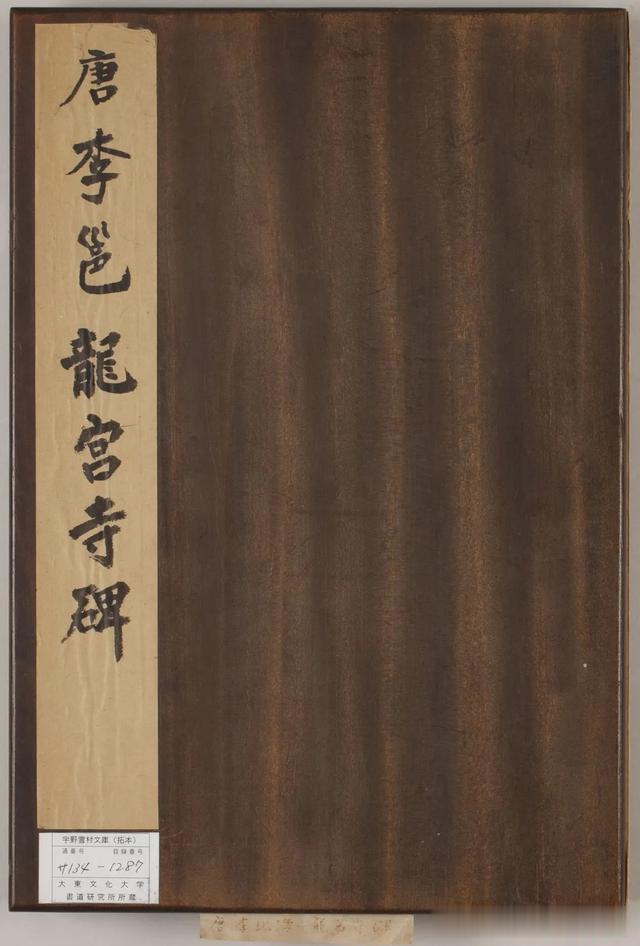 唐李邕龍宮寺碑
宇野雪村文庫（拓本）
通番号 目録番号
サ134-1287
大東文化大学
書道研究所所蔵